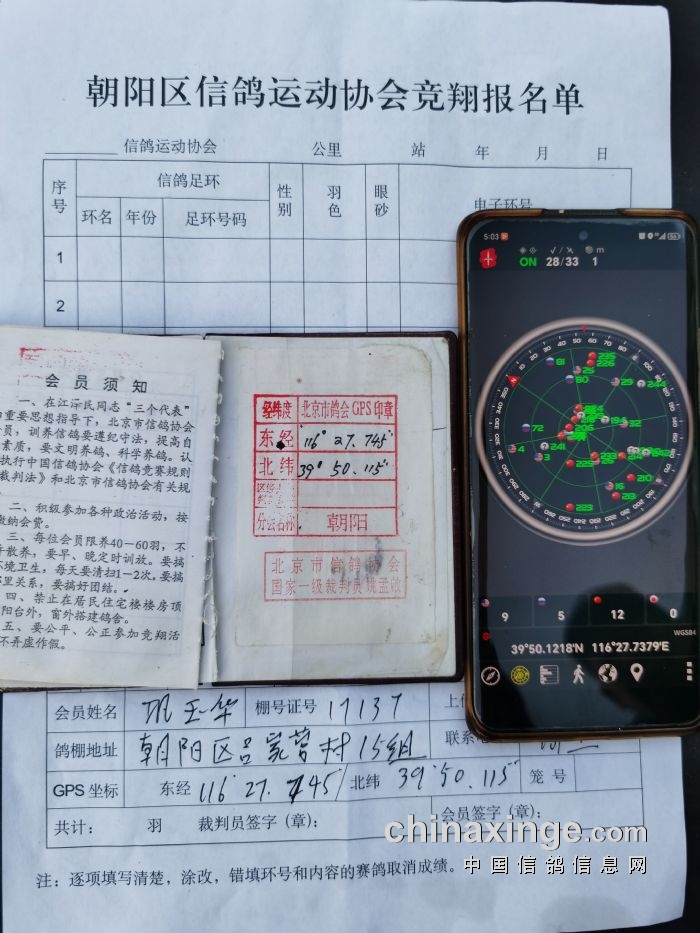 朝阳区信鸽运动协会竞翔报名单
信鸽运动协会 公里 站 年 月 日
序号 信鸽足环 性别 羽色 眼砂 电子环号
环名 年份 足环号码
1
2
会员须知
一、在江泽民同志“三个代表”
重要思想指导下，北京市信鸽协会
员，训养信鸽要遵纪守法，提高自
素质，要文明养鸽、科学养鸽。认
执行中国信鸽协会《信鸽竞赛规则
裁判法》和北京市信鸽协会有关规
二、积极参加各种政治活动，按
缴纳会费。
三、每位会员限养40—60羽，不
散养，要早、晚定时训放。要搞
环境卫生，每天要清扫1—2次，要搞
里关系，要搞好团结。
四、禁止在居民住宅楼楼房顶
阳台外，窗外搭建鸽舍。
五、要公平、公正参加竞翔活
不弄虚作假。
经纬度 北京市鸽会GPS印章
东经 116° 27.745"
北纬 39° 50.115"
分会名称 朝阳
北京市信鸽协会
国家一级裁判员姚孟啟
5:03
ON 28/33 1
9 5 12 0
WGS84
39°50.1218'N 116°27.7379'E
会员姓名 巩玉华 棚号证号 17137
鸽棚地址 朝阳区吕家营村15组
GPS坐标 东经 116°27.745' 北纬 39°50.115" 笼号
共计： 羽 裁判员签字（章）： 会员签字（章）：
注：逐项填写清楚，涂改，错填环号和内容的赛鸽取消成绩。
chinaxinge.com
中国信鸽信息网